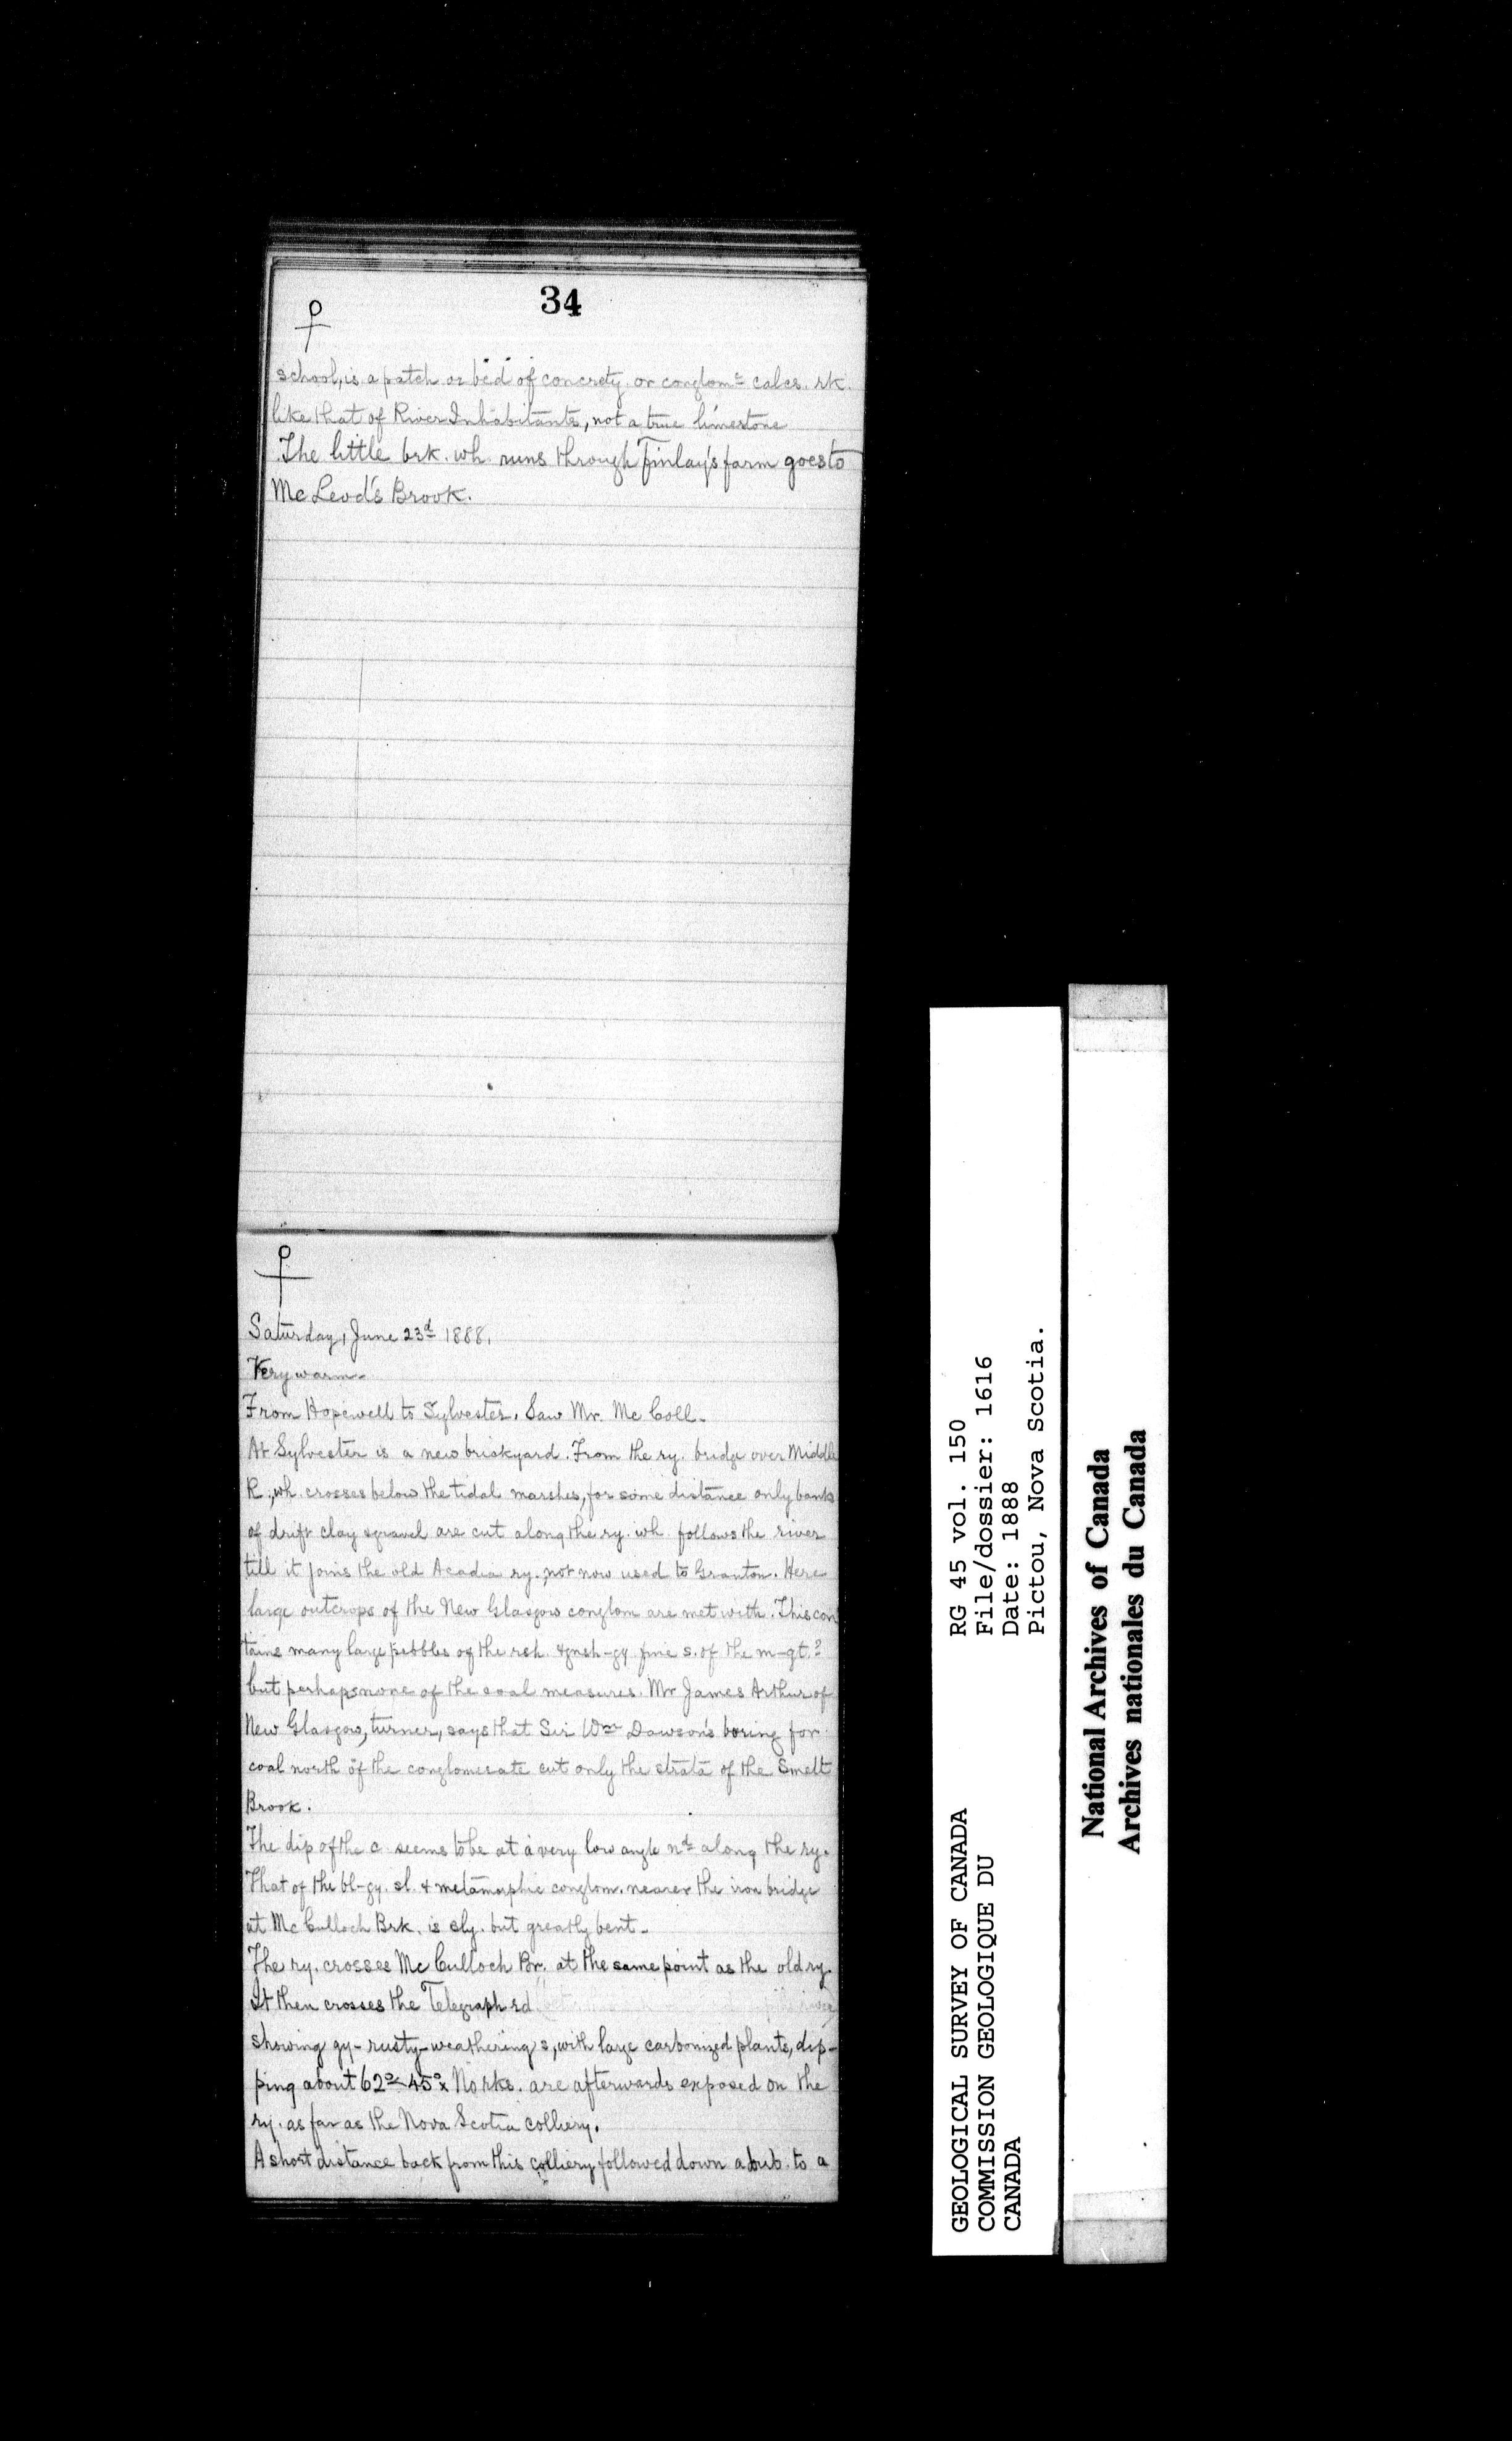 34
school, is a patch or bed of concrety. or conglomte calcs. rk.
like that of River Inhabitants, not a true limestone
The little brk. wh. runs through Finlay's farm goes to
McLeod's Brook.
Saturday, June 23d 1888.
Very warm.
From Hopewell to Sylvester. Saw Mr. Mc Coll.
At Sylvester is a new brickyard. From the ry. bridge over Middle
R., wh. crosses below the tidal marshes, for some distance only banks
of drift clay & gravel are cut along the ry. wh. follows the river
till it joins the old Acadia ry., not now used to Granton. Here
large outcrops of the New Glasgow conglom are met with. This con
tains many large pebbles of the rsh. & gnsh-gy fine s. of the m-gt.?
but perhaps none of the coal measures. Mr James Arthur of
New Glasgow, turner, says that Sir Wm Dawson's boring for
coal north of the conglomerate cut only the strata of the Smelt
Brook.
The dip of the c. seems to be at a very low angle nd along the ry.
That of the bl-gy. sl. & metamorphic conglom. nearer the iron bridge
at McCulloch Brk. is sly. but greatly bent.
The ry. crosses McCulloch Br. at the same point as the old ry.
It then crosses the Telegraph rd
showing gy-rusty-weathering s, with large carbonized plants, dip-
ping about 62°<45° x No rks. are afterwards exposed on the
ry. as far as the Nova Scotia colliery.
A short distance back from this colliery followed down a sub. to a
GEOLOGICAL SURVEY OF CANADA
COMMISSION GEOLOGIQUE DU
CANADA
RG 45 vol. 150
File/dossier: 1616
Date: 1888
Pictou, Nova Scotia.
National Archives of Canada
Archives nationales du Canada